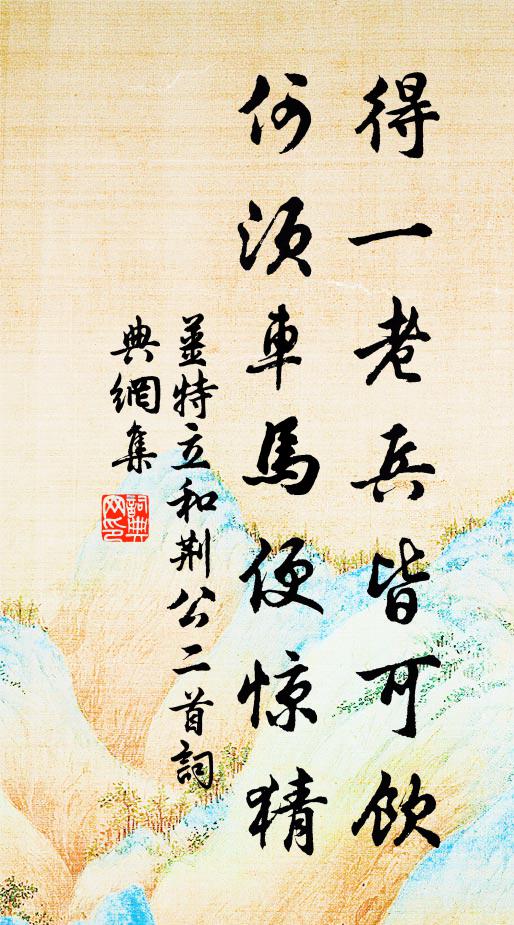 得一老兵皆可飲
何須車馬便惊猜
薑特立和荆公二首詞
典網集
詞典
网印